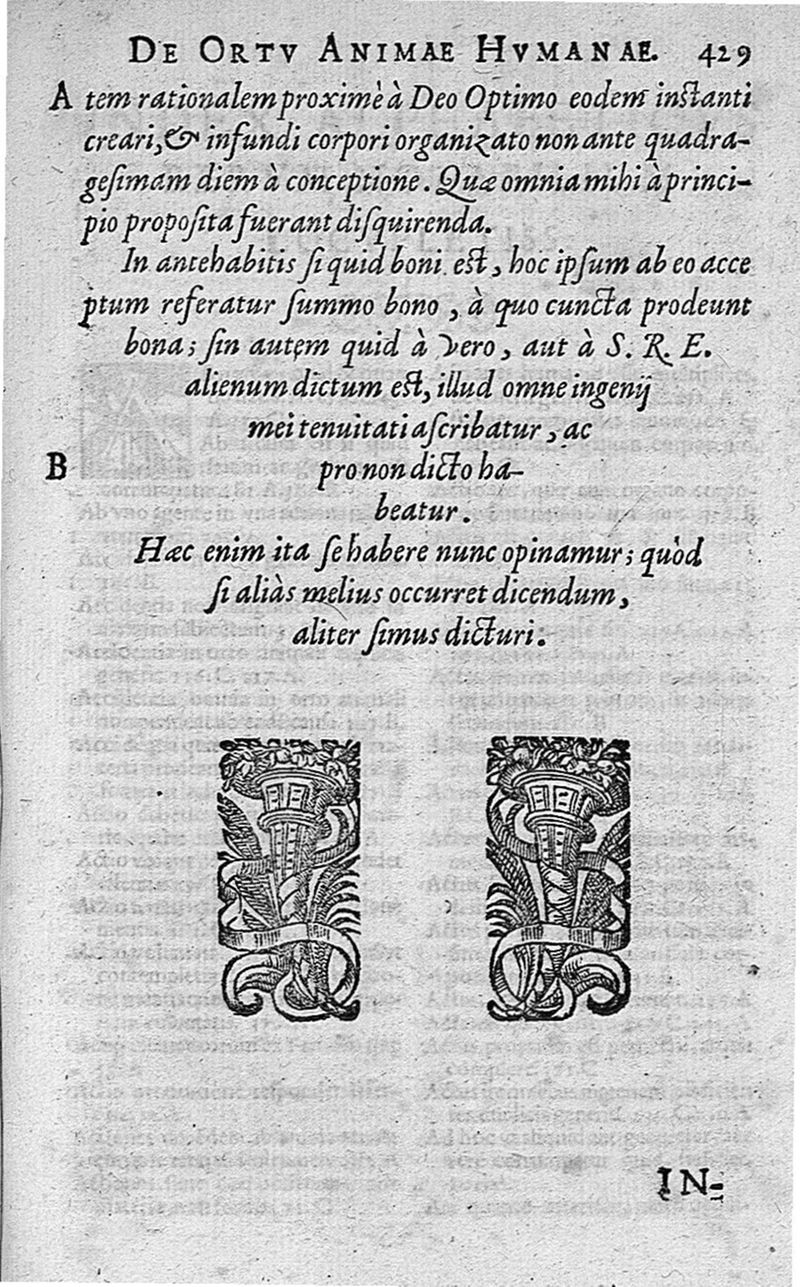 DE ORTV ANIMAE HVMANAE. 429
A tem rationalem proximè à Deo Optimo eodem instanti
creari, & infundi corpori organizato non ante quadra-
gesimam diem à conceptione. Quæ omnia mihi à princi-
pio proposita fuerant disquirenda.
In antehabitis si quid boni est, hoc ipsum ab eo acce
ptum referatur summo bono, à quo cuncta prodeunt
bona; sin autem quid à vero, aut à S. R. E.
alienum dictum est, illud omne ingenij
mei tenuitati ascribatur, ac
B pro non dicto ha-
beatur.
Hæc enim ita se habere nunc opinamur; quòd
si aliàs melius occurret dicendum,
aliter simus dicturi.
IN-